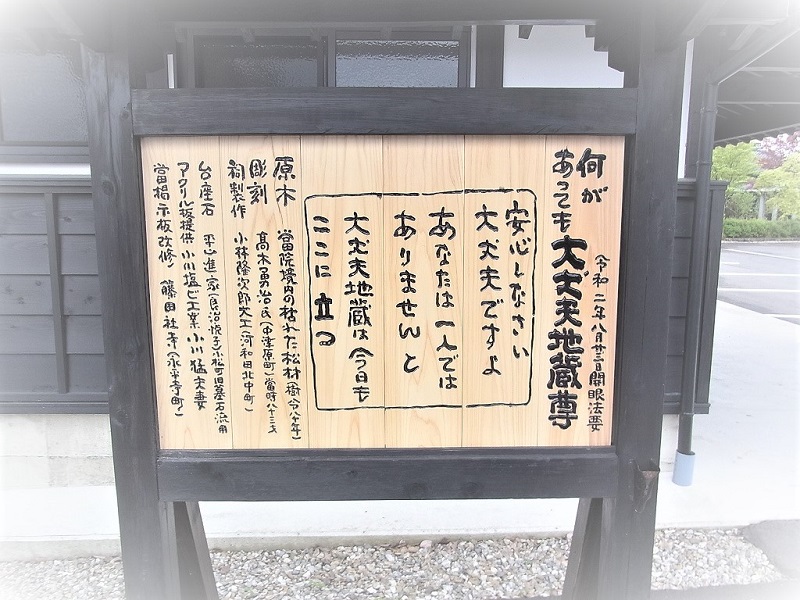 何が
あっても大丈夫地蔵尊
(令和二年八月廿三日開眼法要)
安心しなさい
大丈夫ですよ
あなたは一人では
ありませんと
大丈夫地蔵は今日も
ここに立つ
原木 當院境内の枯れた松材(樹令八十年)
彫刻 髙木勇治氏(中津原町)當時八十三才
祠製作 小林隆次郎大工(河和田北中町)
台座石 平 進家(良治 悦子)小松町旧墓石流用
アクリル板提供 小川塩ビ工業 小川猛夫妻
當掲示板改修) 藤田社寺(永平寺町)